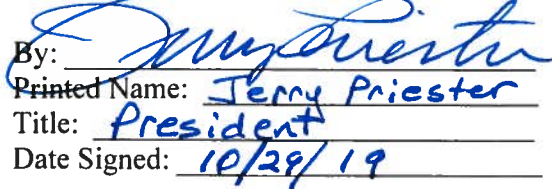 By: Jerry Priester
Printed Name: Jerry Priester
Title: President
Date Signed: 10/29/19